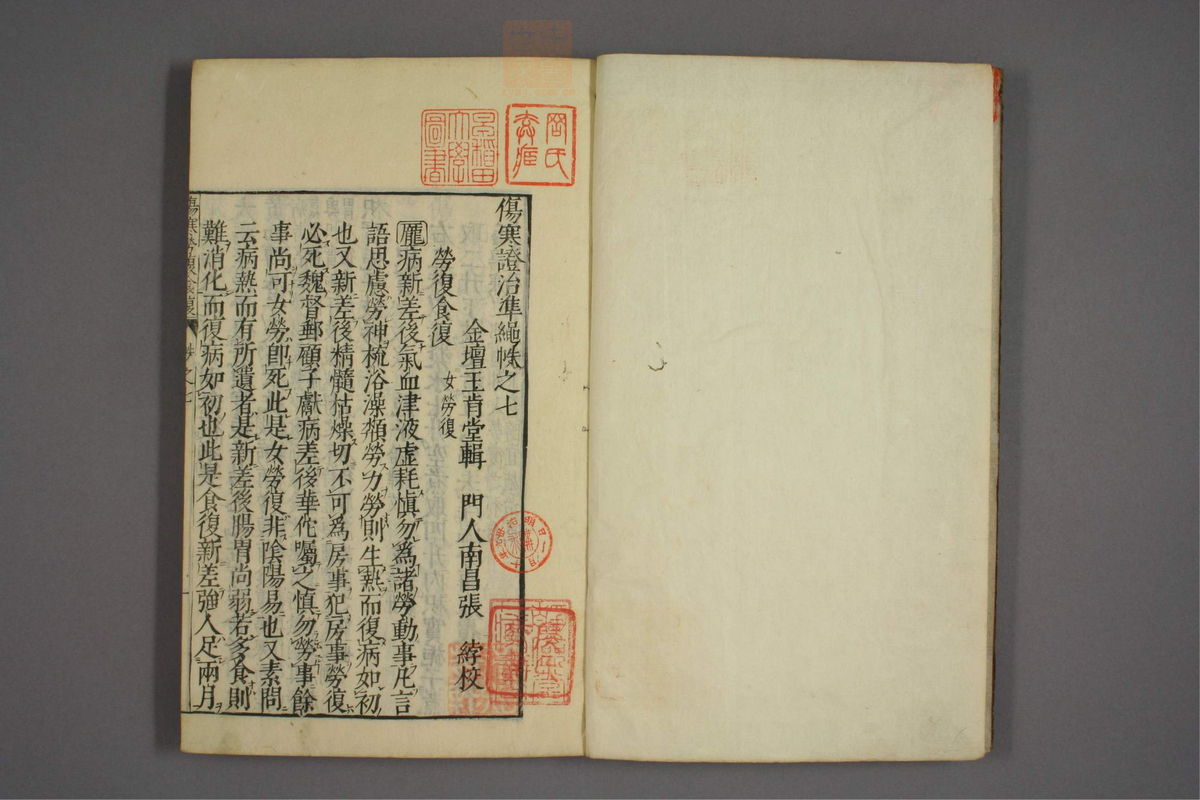 傷寒證治準繩帙之七
金壇王肯堂輯 門人南昌張 綍校
勞復食復 女勞復
龐病新差後氣血津液虛耗慎勿為諸勞動事凡言
語思慮勞神梳浴澡頮勞力勞則生熱而復病如初
也又新差後精髓枯燥切不可為房事犯房事勞復
必死魏督郵顧子獻病差後華佗囑之慎勿勞事餘
事尚可女勞即死此是女勞復非陰陽易也又素問
云病熱而有所遺者是新差後腸胃尚弱若多食則
難消化而復病如初也此是食復新差強人足兩月
早稻田
大學
圖書